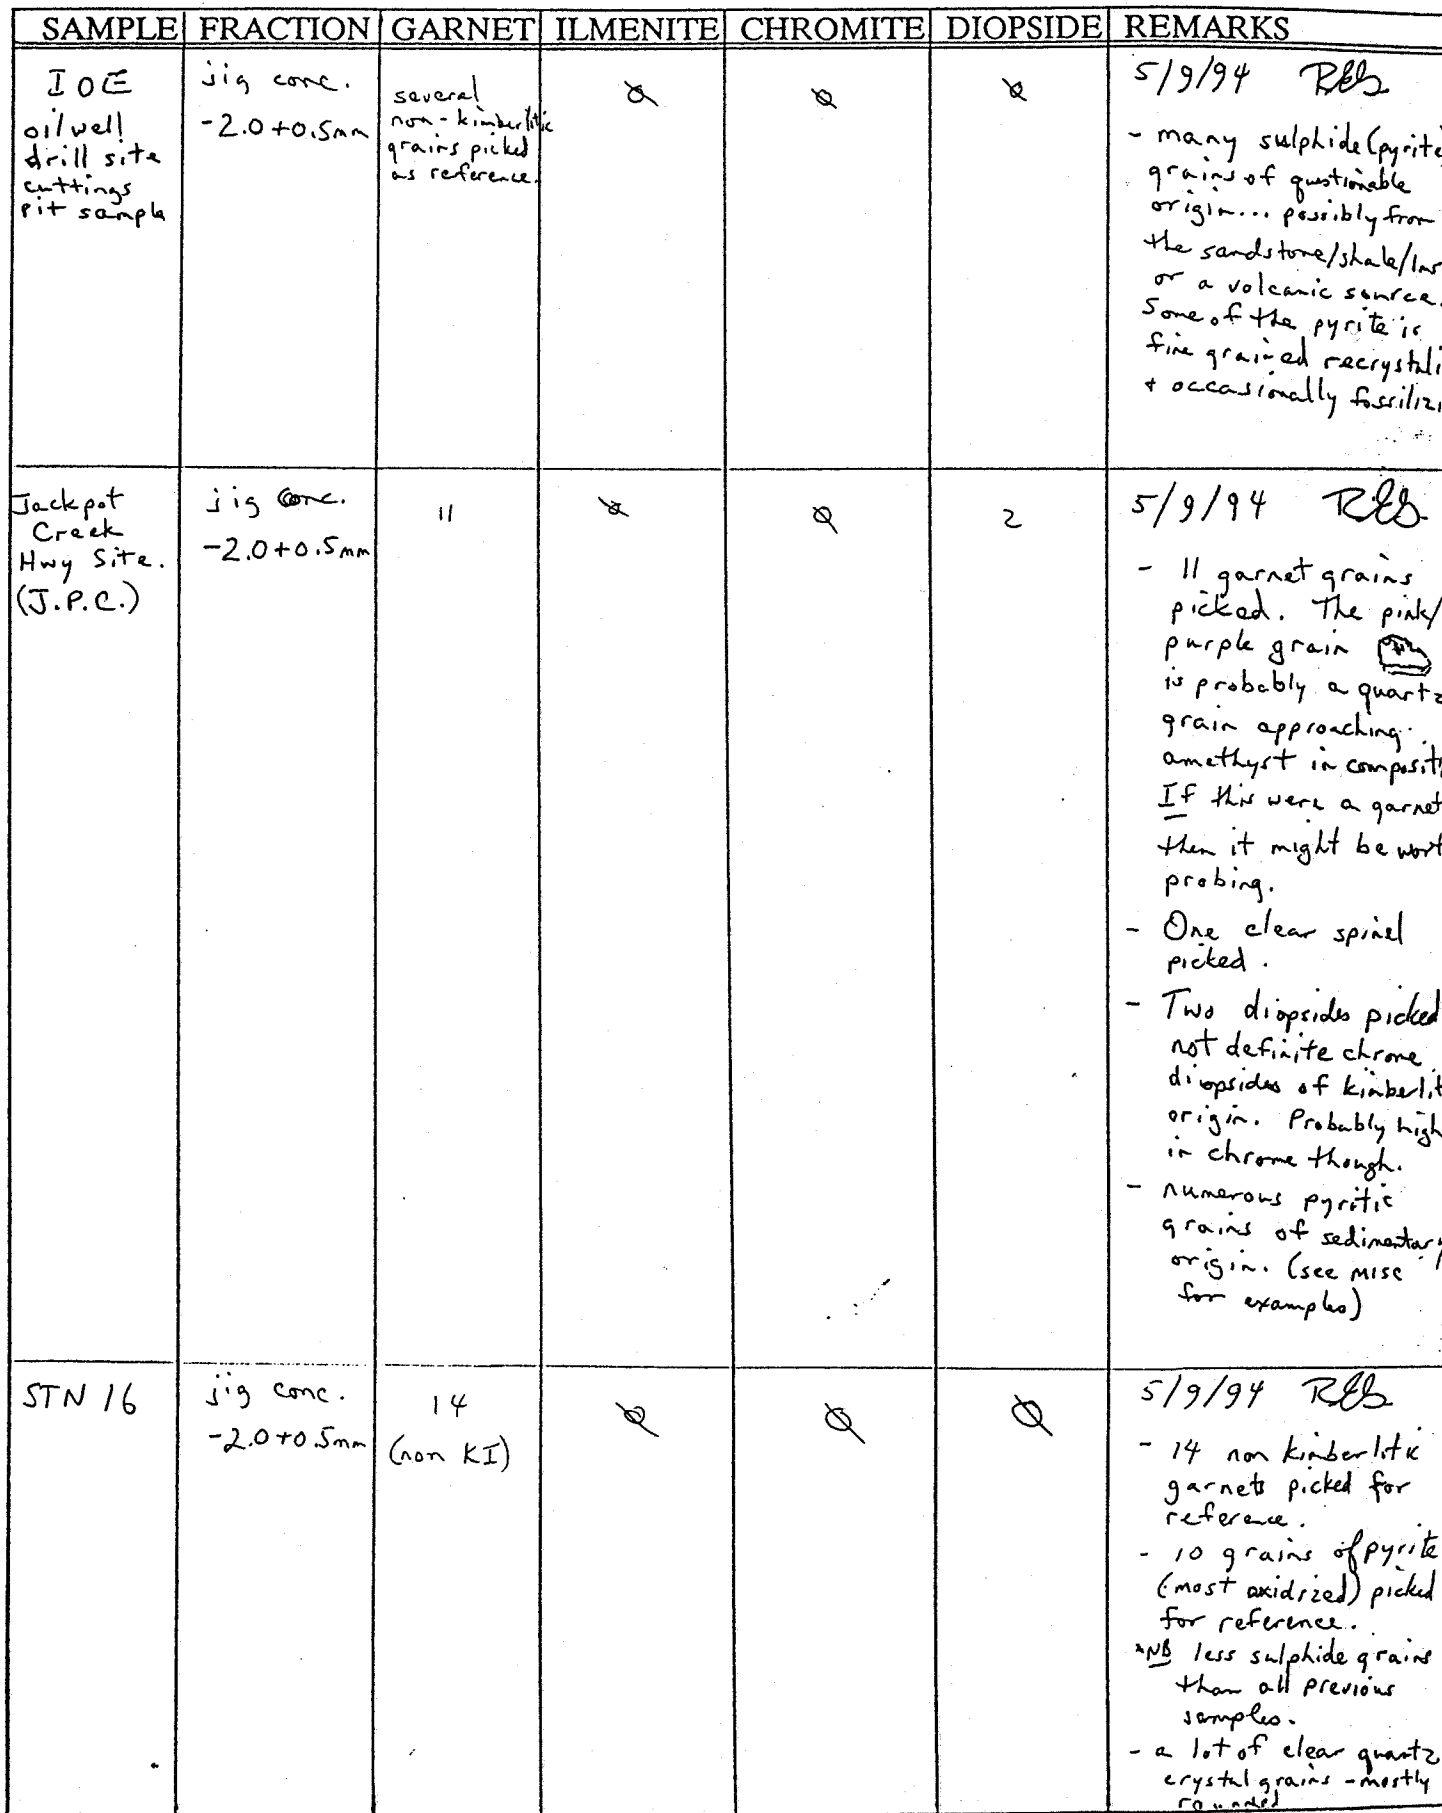 SAMPLE FRACTION GARNET ILMENITE CHROMITE DIOPSIDE REMARKS
IOE
oil well
drill site
cuttings
pit sample
jig conc.
-2.0+0.5mm
several
non-kimberlitic
grains picked
as reference.
Ø
Ø
Ø
5/9/94
- many sulphide (pyrite)
grains of questionable
origin... possibly from
the sandstone/shale/
or a volcanic source.
Some of the pyrite is
fine grained recrystali
+ occasionally fossiliz
Jackpot
Creek
Hwy Site.
(J.P.C.)
jig conc.
-2.0+0.5mm
11
Ø
Ø
2
5/9/94
- 11 garnet grains
picked. The pink/
purple grain
is probably a quartz
grain approaching
amethyst in composit
If this were a garnet
then it might be wort
probing.
- One clear spinel
picked.
- Two diopsides picked
not definite chrome
diopsides of kimberlit
origin. Probably high
in chrome though.
- numerous pyritic
grains of sedimentary
origin. (see misc
for examples)
STN 16
jig conc.
-2.0+0.5mm
14
(non KI)
Ø
Ø
Ø
5/9/94
- 14 non kimberlitic
garnets picked for
reference.
- 10 grains of pyrite
(most oxidized) picked
for reference.
*NB less sulphide grains
than all previous
samples.
- a lot of clear quartz
crystal grains - mostly
rounded